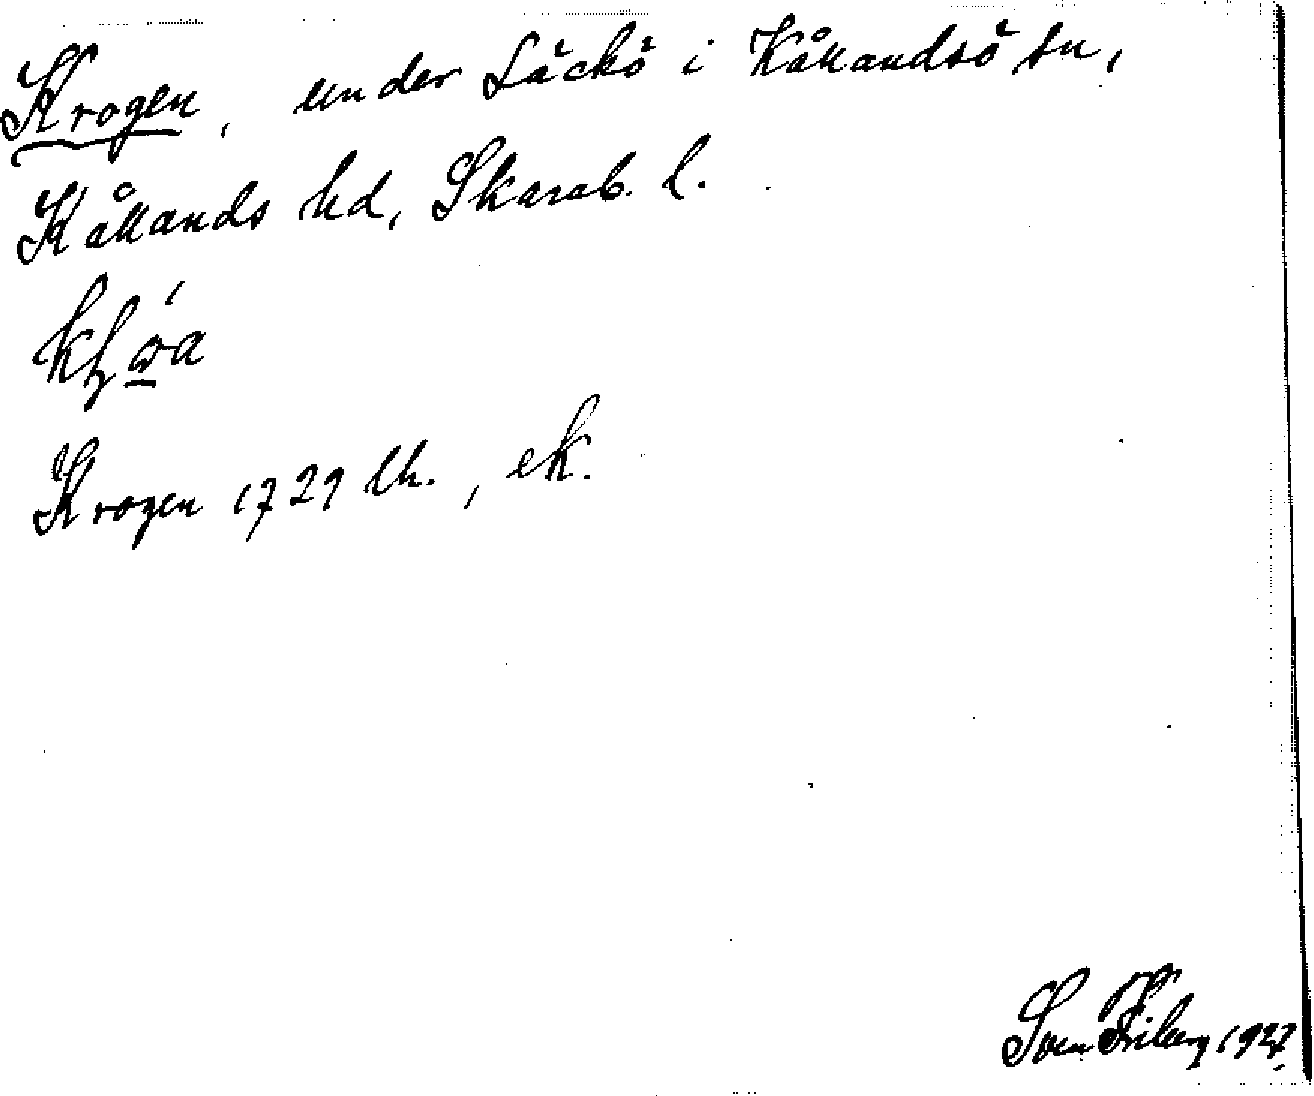 Krogen, under Läckö i Kållandsö sn,
Kållands hd, Skarab. l.
Krogen 1729 lh., ek.
Sven Friberg 1927.